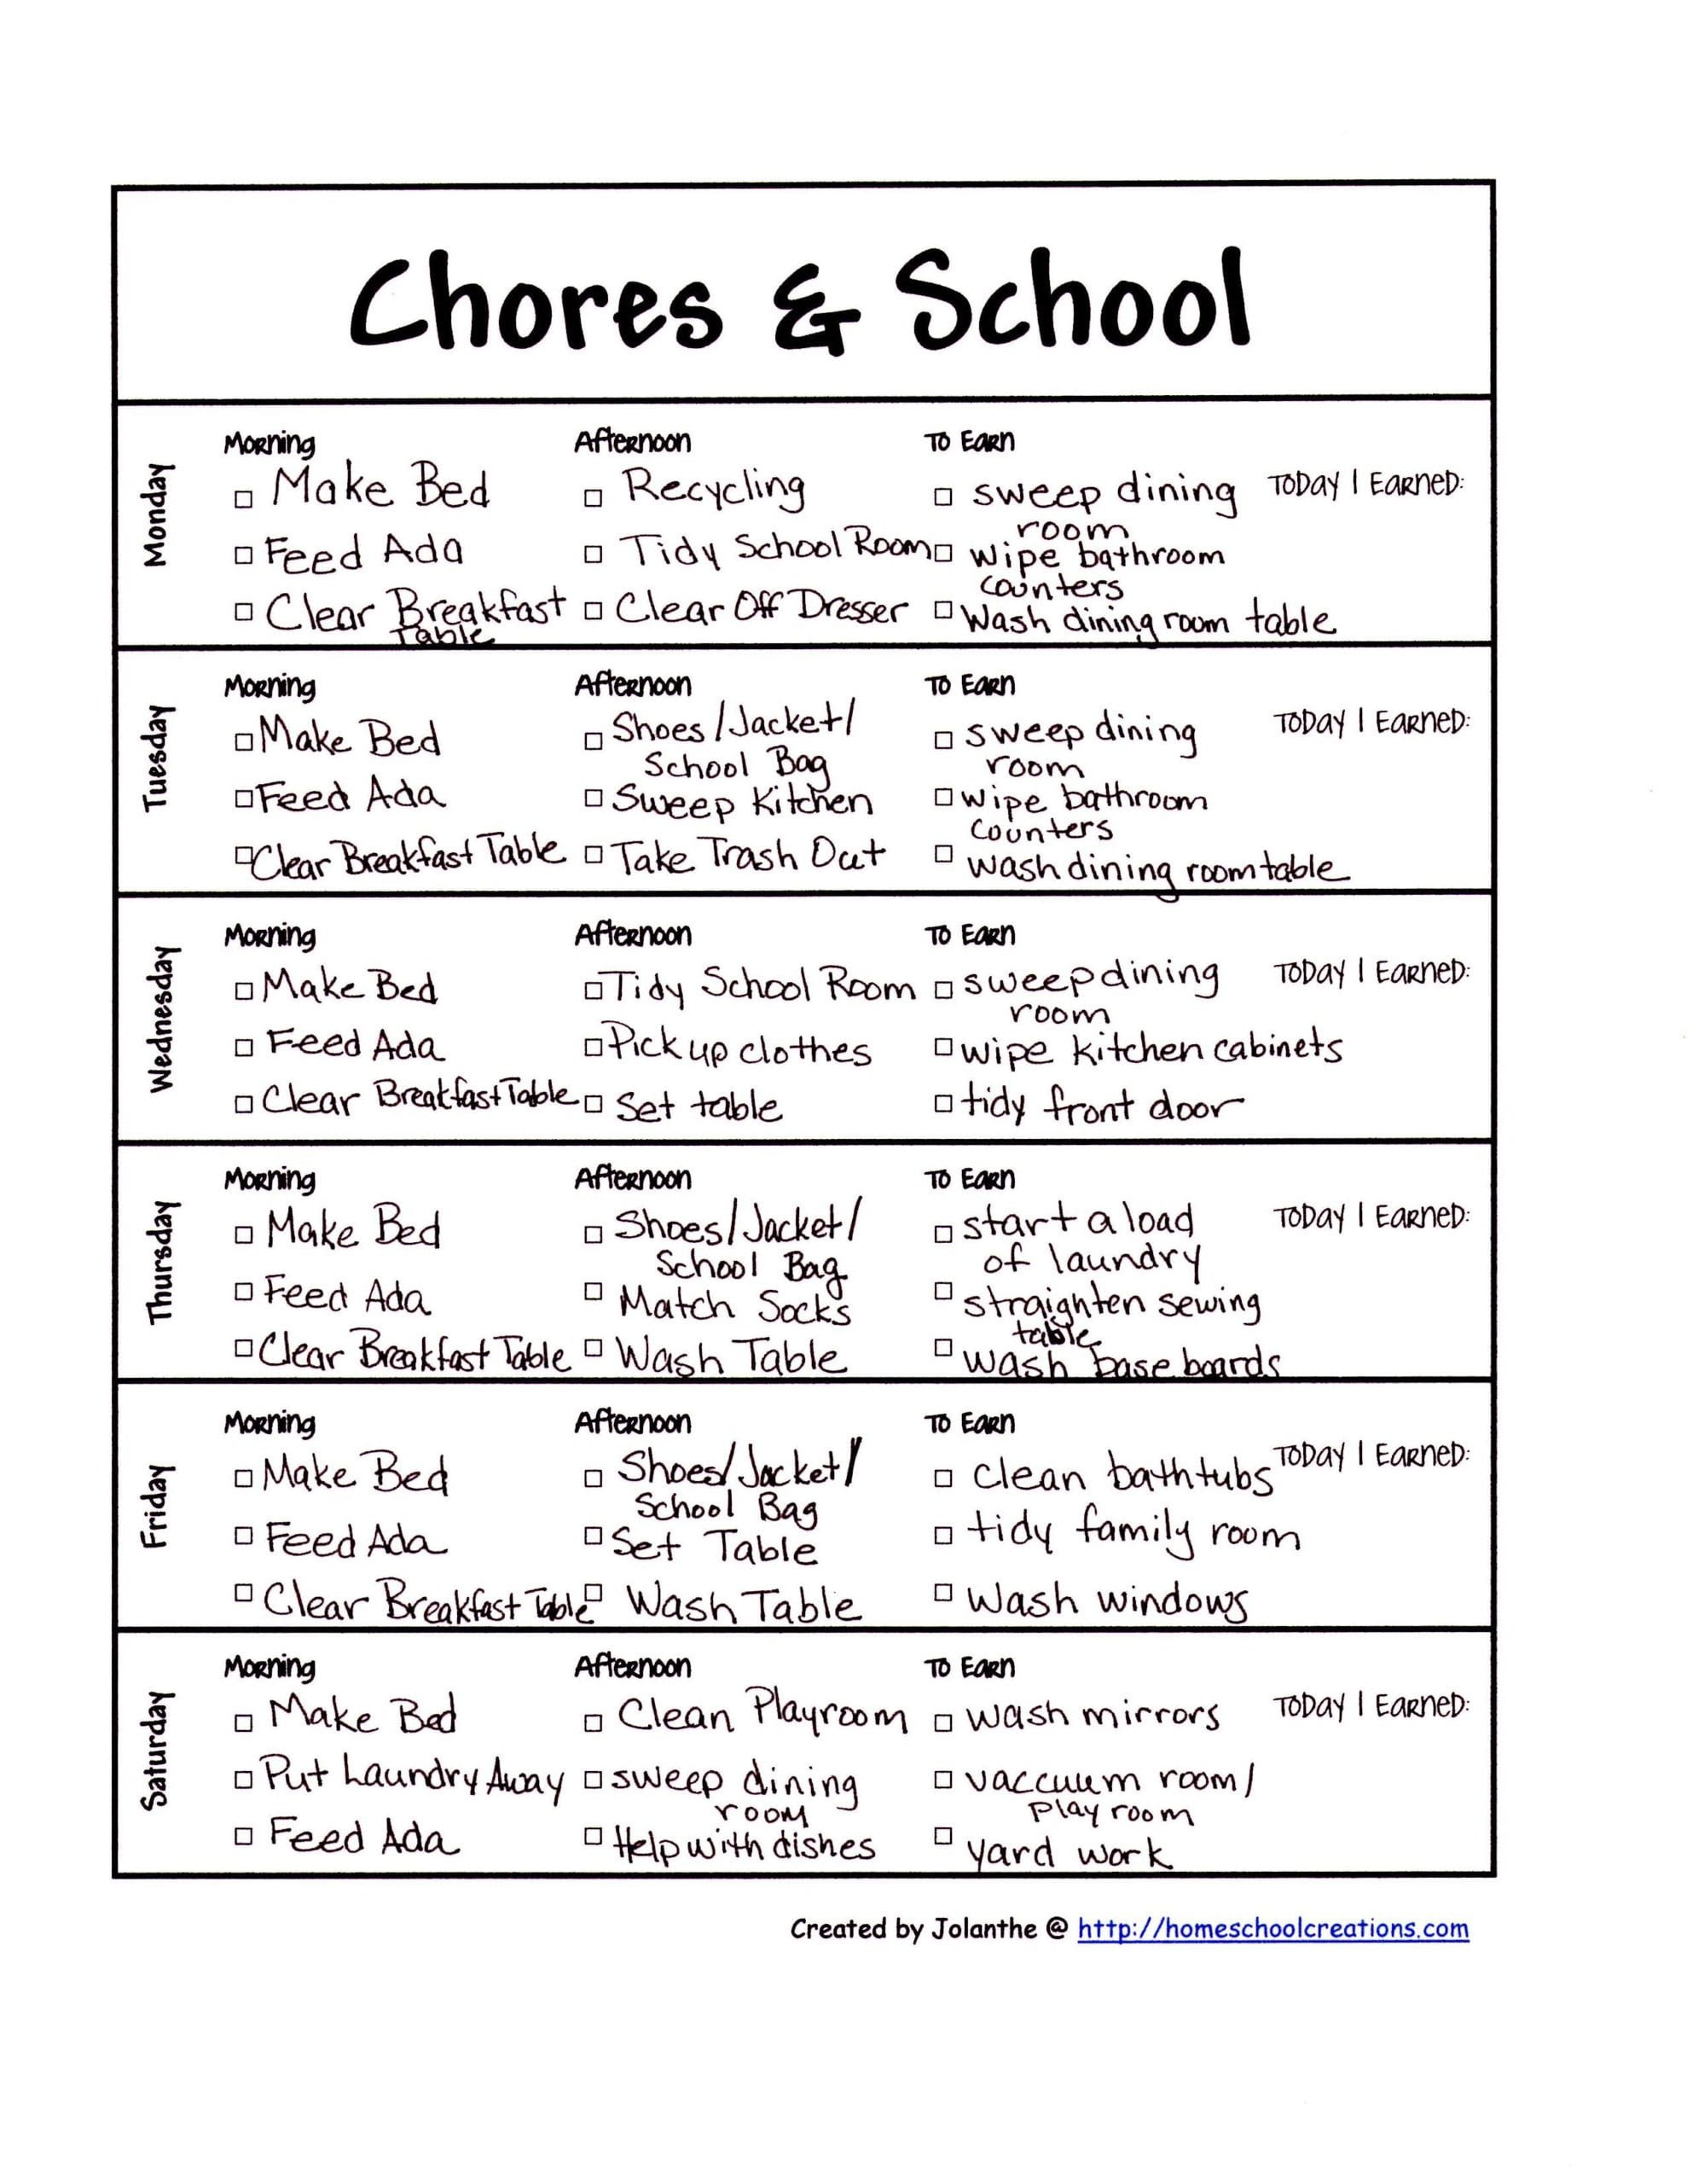 Chores & School
Monday
Morning
Make Bed
Feed Ada
Clear Breakfast
Table
Afternoon
Recycling
Tidy School Room
Clear Off Dresser
To Earn
sweep dining
room
wipe bathroom
counters
Wash dining room table
Today I Earned:
Tuesday
Morning
Make Bed
Feed Ada
Clear Breakfast Table
Afternoon
Shoes/Jacket/
School Bag
Sweep Kitchen
Take Trash Out
To Earn
sweep dining
room
wipe bathroom
counters
wash dining room table
Today I Earned:
Wednesday
Morning
Make Bed
Feed Ada
Clear Breakfast Table
Afternoon
Tidy School Room
Pick up clothes
Set table
To Earn
sweep dining
room
wipe kitchen cabinets
tidy front door
Today I Earned:
Thursday
Morning
Make Bed
Feed Ada
Clear Breakfast Table
Afternoon
Shoes/Jacket/
School Bag
Match Socks
Wash Table
To Earn
start a load
of laundry
straighten sewing
table
wash base boards
Today I Earned:
Friday
Morning
Make Bed
Feed Ada
Clear Breakfast Table
Afternoon
Shoes/Jacket/
School Bag
Set Table
Wash Table
To Earn
clean bathtubs
tidy family room
Wash windows
Today I Earned:
Saturday
Morning
Make Bed
Put Laundry Away
Feed Ada
Afternoon
Clean Playroom
sweep dining
room
Help with dishes
To Earn
wash mirrors
vaccuum room/
play room
yard work
Today I Earned:
Created by Jolanthe @ http://homeschoolcreations.com